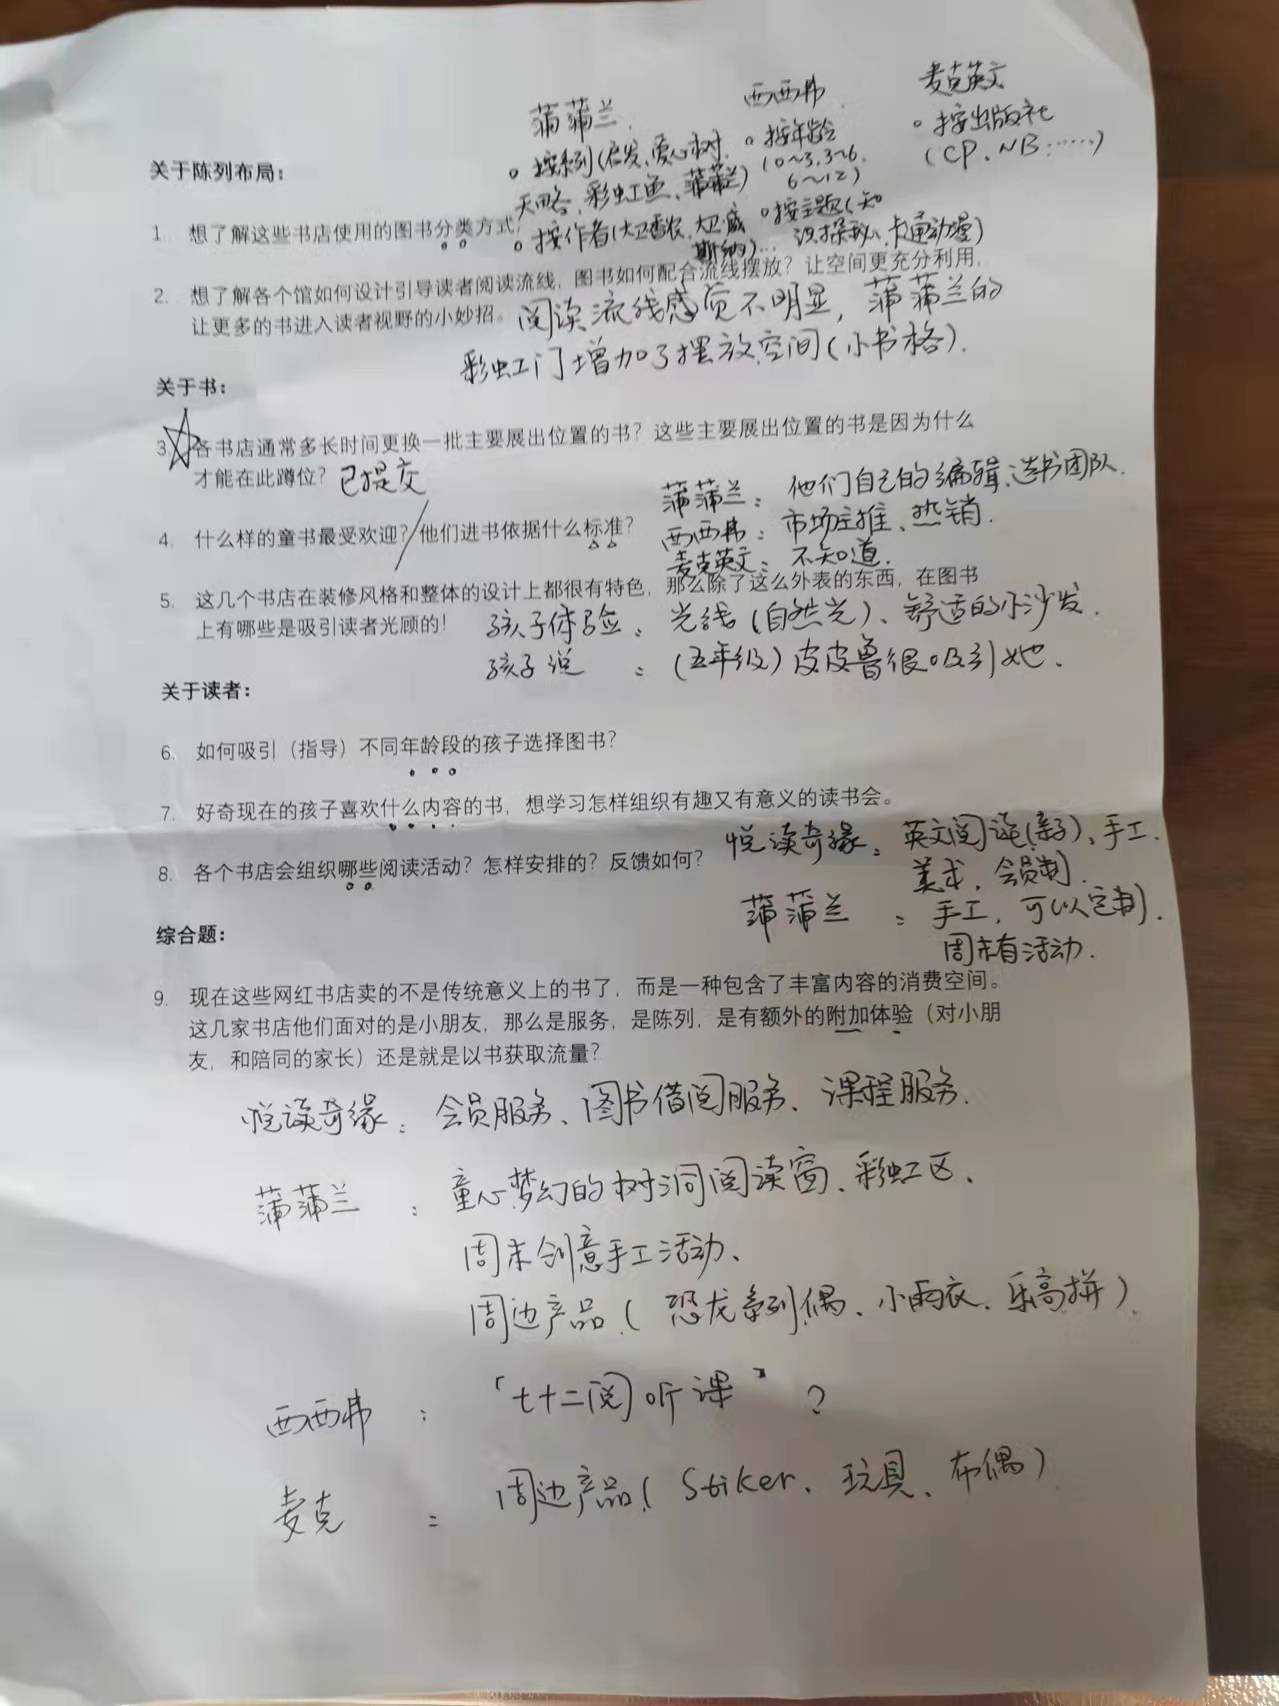 蒲蒲兰 西西弗 麦克英文
。按系列(启发,爱心树, 。按年龄 。按出版社
天略,彩虹鱼,蒲蒲兰) (0~3,3~6, (CP、NB……)
6~12)
关于陈列布局:
1. 想了解这些书店使用的图书分类方式,
。按作者(大卫香农,大卫威 。按主题(知
斯纳)… 识探秘、卡通动漫)
2. 想了解各个馆如何设计引导读者阅读流线,图书如何配合流线摆放?让空间更充分利用,
让更多的书进入读者视野的小妙招。
阅读流线感觉不明显,蒲蒲兰的
彩虹门增加了摆放空间(小书格).
关于书:
3. 各书店通常多长时间更换一批主要展出位置的书?这些主要展出位置的书是因为什么
才能在此蹲位? 已提交
蒲蒲兰: 他们自己的编辑、选书团队.
4. 什么样的童书最受欢迎?/他们进书依据什么标准?
西西弗: 市场主推、热销.
麦克英文: 不知道.
5. 这几个书店在装修风格和整体的设计上都很有特色,那么除了这么外表的东西,在图书
上有哪些是吸引读者光顾的!
孩子体验: 光线(自然光)、舒适的小沙发.
孩子说 : (五年级)皮皮鲁很吸引她.
关于读者:
6. 如何吸引(指导)不同年龄段的孩子选择图书?
7. 好奇现在的孩子喜欢什么内容的书,想学习怎样组织有趣又有意义的读书会。
8. 各个书店会组织哪些阅读活动?怎样安排的?反馈如何?
悦读奇缘: 英文阅读(亲子)、手工.
美术,会员制.
蒲蒲兰 : 手工,可以定制.
周末有活动.
综合题:
9. 现在这些网红书店卖的不是传统意义上的书了,而是一种包含了丰富内容的消费空间。
这几家书店他们面对的是小朋友,那么是服务,是陈列,是有额外的附加体验(对小朋
友,和陪同的家长)还是就是以书获取流量?
悦读奇缘: 会员服务、图书借阅服务、课程服务.
蒲蒲兰 : 童心梦幻的树洞阅读窗、彩虹区、
周末创意手工活动、
周边产品(恐龙系列偶、小雨衣、乐高拼)
西西弗 : 「七十二阅听课」?
麦克 : 周边产品(Stiker、玩具、布偶)